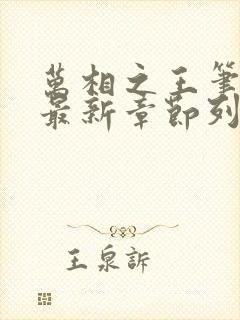 萬相之王筆
最新章節列
王泉訴